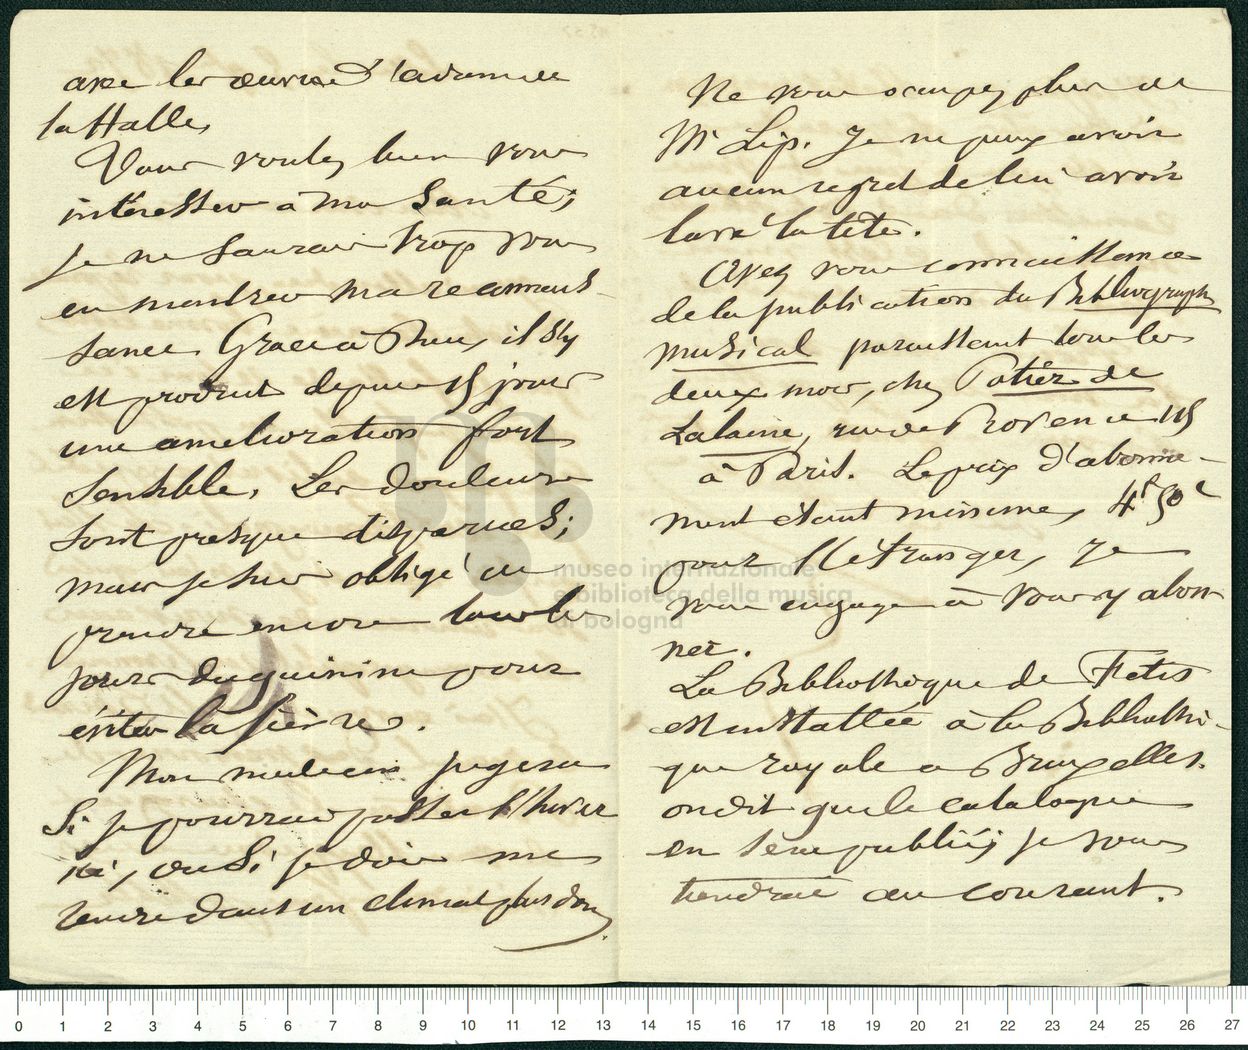 avec les œuvres d'adam de
la Halle,
Vous voulez bien vous
intéresser à ma Santé;
je ne Saurais trop vous
en montrer ma reconnais-
sance. Grace à Dieu, il s'y
est produit depuis 15 jours
une amélioration fort
Sensible. Les douleurs
Sont presque disparues;
mais je suis obligé de
prendre encore tous les
jours du quinine pour
éviter la fièvre.
Mon medecin jugera
Si je pourrai passer l'hiver
ici, ou Si je dois me
rendre dans un climat plus doux
Ne vous occupez plus de
Mr Lip. Je ne peux avoir
aucun regret de lui avoir
lavé la tête.
Avez vous connaissance
de la publication du Bibliographe
musical paraissant tous les
deux mois, chez Potier de
Lalaine, rue de Provence 115
à Paris. Le prix d'abonne-
ment étant minime, 4f 50c
pour l'étranger, je
vous engage à vous y abon-
ner.
La Bibliothèque de Fétis
est installée à la Bibliothè-
que royale à Bruxelles.
on dit que le catalogue
en sera publié; je vous
tiendrai au courant.
museo internazionale
e biblioteca della musica
di bologna
0 1 2 3 4 5 6 7 8 9 10 11 12 13 14 15 16 17 18 19 20 21 22 23 24 25 26 27